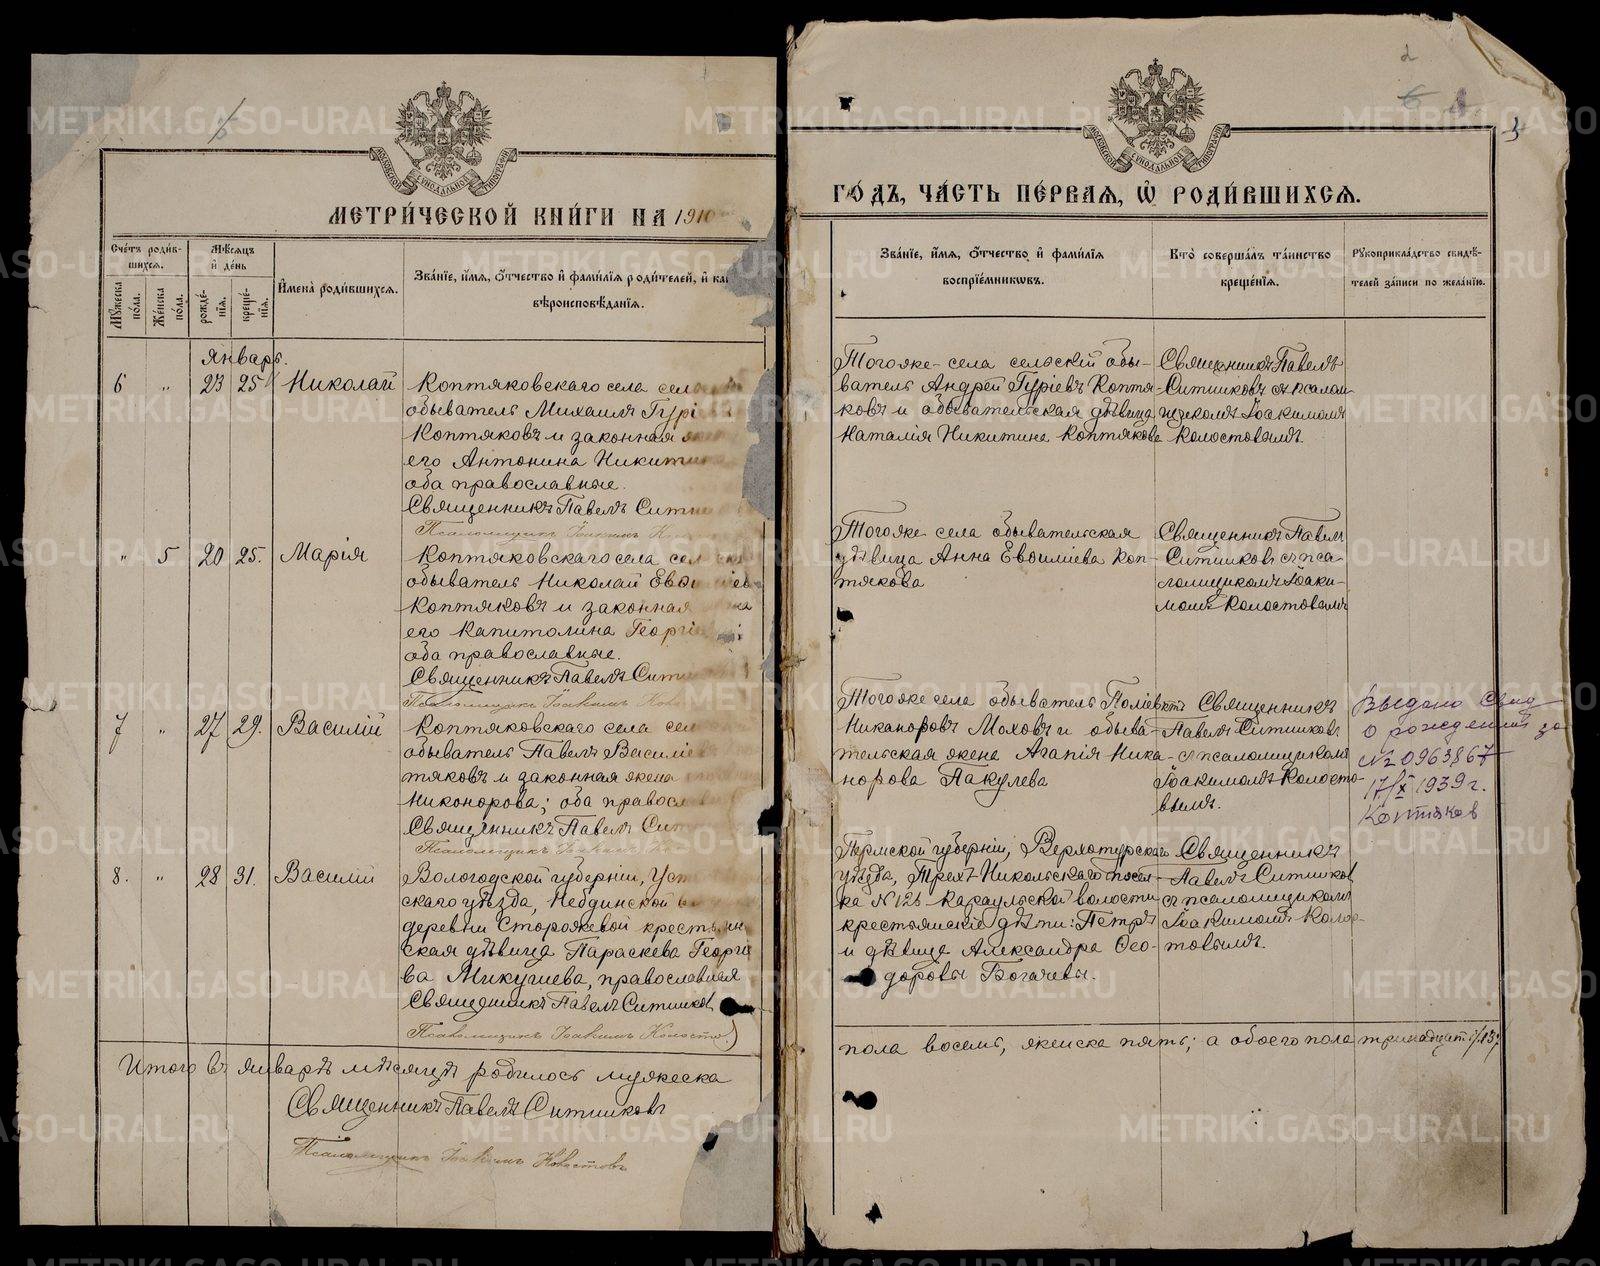 МЕТРИ́ЧЕСКОЙ КНИ́ГИ НА 1910
Счетъ роди́в-
шихся.
Мꙋжеска по́ла.
Же́нска по́ла.
Мѣ́сяцъ и́ де́нь
рожде́-
нїѧ.
креще́-
нїѧ.
И҆мена̀ роди́вшихсѧ.
Зва́нїе, и҆́мѧ, ѻ҆́тчество и҆ фами́лїѧ роди́телей, и҆ как
вѣроисповѣ́данїѧ.
Январь.
6 " 23 25 Николай
Коптяковскаго села сел
обыватель Михаилъ Гурі
Коптяковъ и законная
его Антонина Никити
оба православные.
Священникъ Павелъ Ситни
Псаломщикъ Іоакимъ К
" 5 20 25. Марія
Коптяковскаго села сел
обыватель Николай Евѳи
Коптяковъ и законная
его Капитолина Георгі
оба православные.
Священникъ Павелъ Ситн
Псаломщикъ Іоакимъ Коло
7 " 27 29. Василій
Коптяковскаго села сел
обыватель Павелъ Василіе
тяковъ и законная жена
Никонорова; оба правосл
Священникъ Павелъ Сит
Псаломщикъ Іоакимъ Ко
8. " 28 31. Василій
Вологодской губерніи, Уст
скаго уѣзда, Небдинской в
деревни Сторожевой крестьян
ская дѣвица Параскева Георгіе
ва Микушева, православная
Священникъ Павелъ Ситников
Псаломщикъ Іоакимъ Колосто
Итого въ январѣ мѣсяцѣ родилось мужеска
Священникъ Павелъ Ситниковъ
Псаломщикъ Іоакимъ Колостовъ
2
6
3
ГО́ДЪ, ЧА́СТЬ ПЕ́РВАѦ, Ѽ РОДИ́ВШИХСѦ.
Зва́нїе, и҆́мѧ, ѻ҆́тчество и҆ фами́лїѧ
воспрїе́мникѡвъ.
Кто̀ соверша́лъ та́инство
креще́нїѧ.
Рꙋкоприкла́дство свидѣ́-
телей за́писи по жела́нїю.
Тогоже села сельскій обы-
ватель Андрей Гуріевъ Коптя-
ковъ и обывательская дѣвица
Наталія Никитина Коптякова
Священникъ Павелъ
Ситниковъ съ псалом-
щикомъ Іоакимомъ
Колостовымъ.
Тогоже села обывательская
дѣвица Анна Евѳиміева Коп-
тякова
Священникъ Павелъ
Ситниковъ съ пса-
ломщикомъ Іоаки-
момъ Колостовымъ
Тогоже села обыватель Поліевктъ
Никаноровъ Моховъ и обыва-
тельская жена Агапія Ника-
норова Пакулева
Священникъ
Павелъ Ситниковъ
съ псаломщикомъ
Іоакимомъ Колосто-
вымъ.
Выдано Свид
о рождении за
№ 0963867
17/IX 1939 г.
Коптяков
Пермской губерніи, Верхотурскаго
уѣзда, Трехъ-Никольскаго посел-
ка № 126 Караульской волости
крестьянскіе дѣти: Петръ
и дѣвица Александра Ѳео-
доровы Богачевы.
Священникъ
Павелъ Ситников
съ псаломщикомъ
Іоакимомъ Колос-
товымъ.
пола восемь, женска пять; а обоего пола тринадцать /13/
METRIKI.GASO-URAL.RU